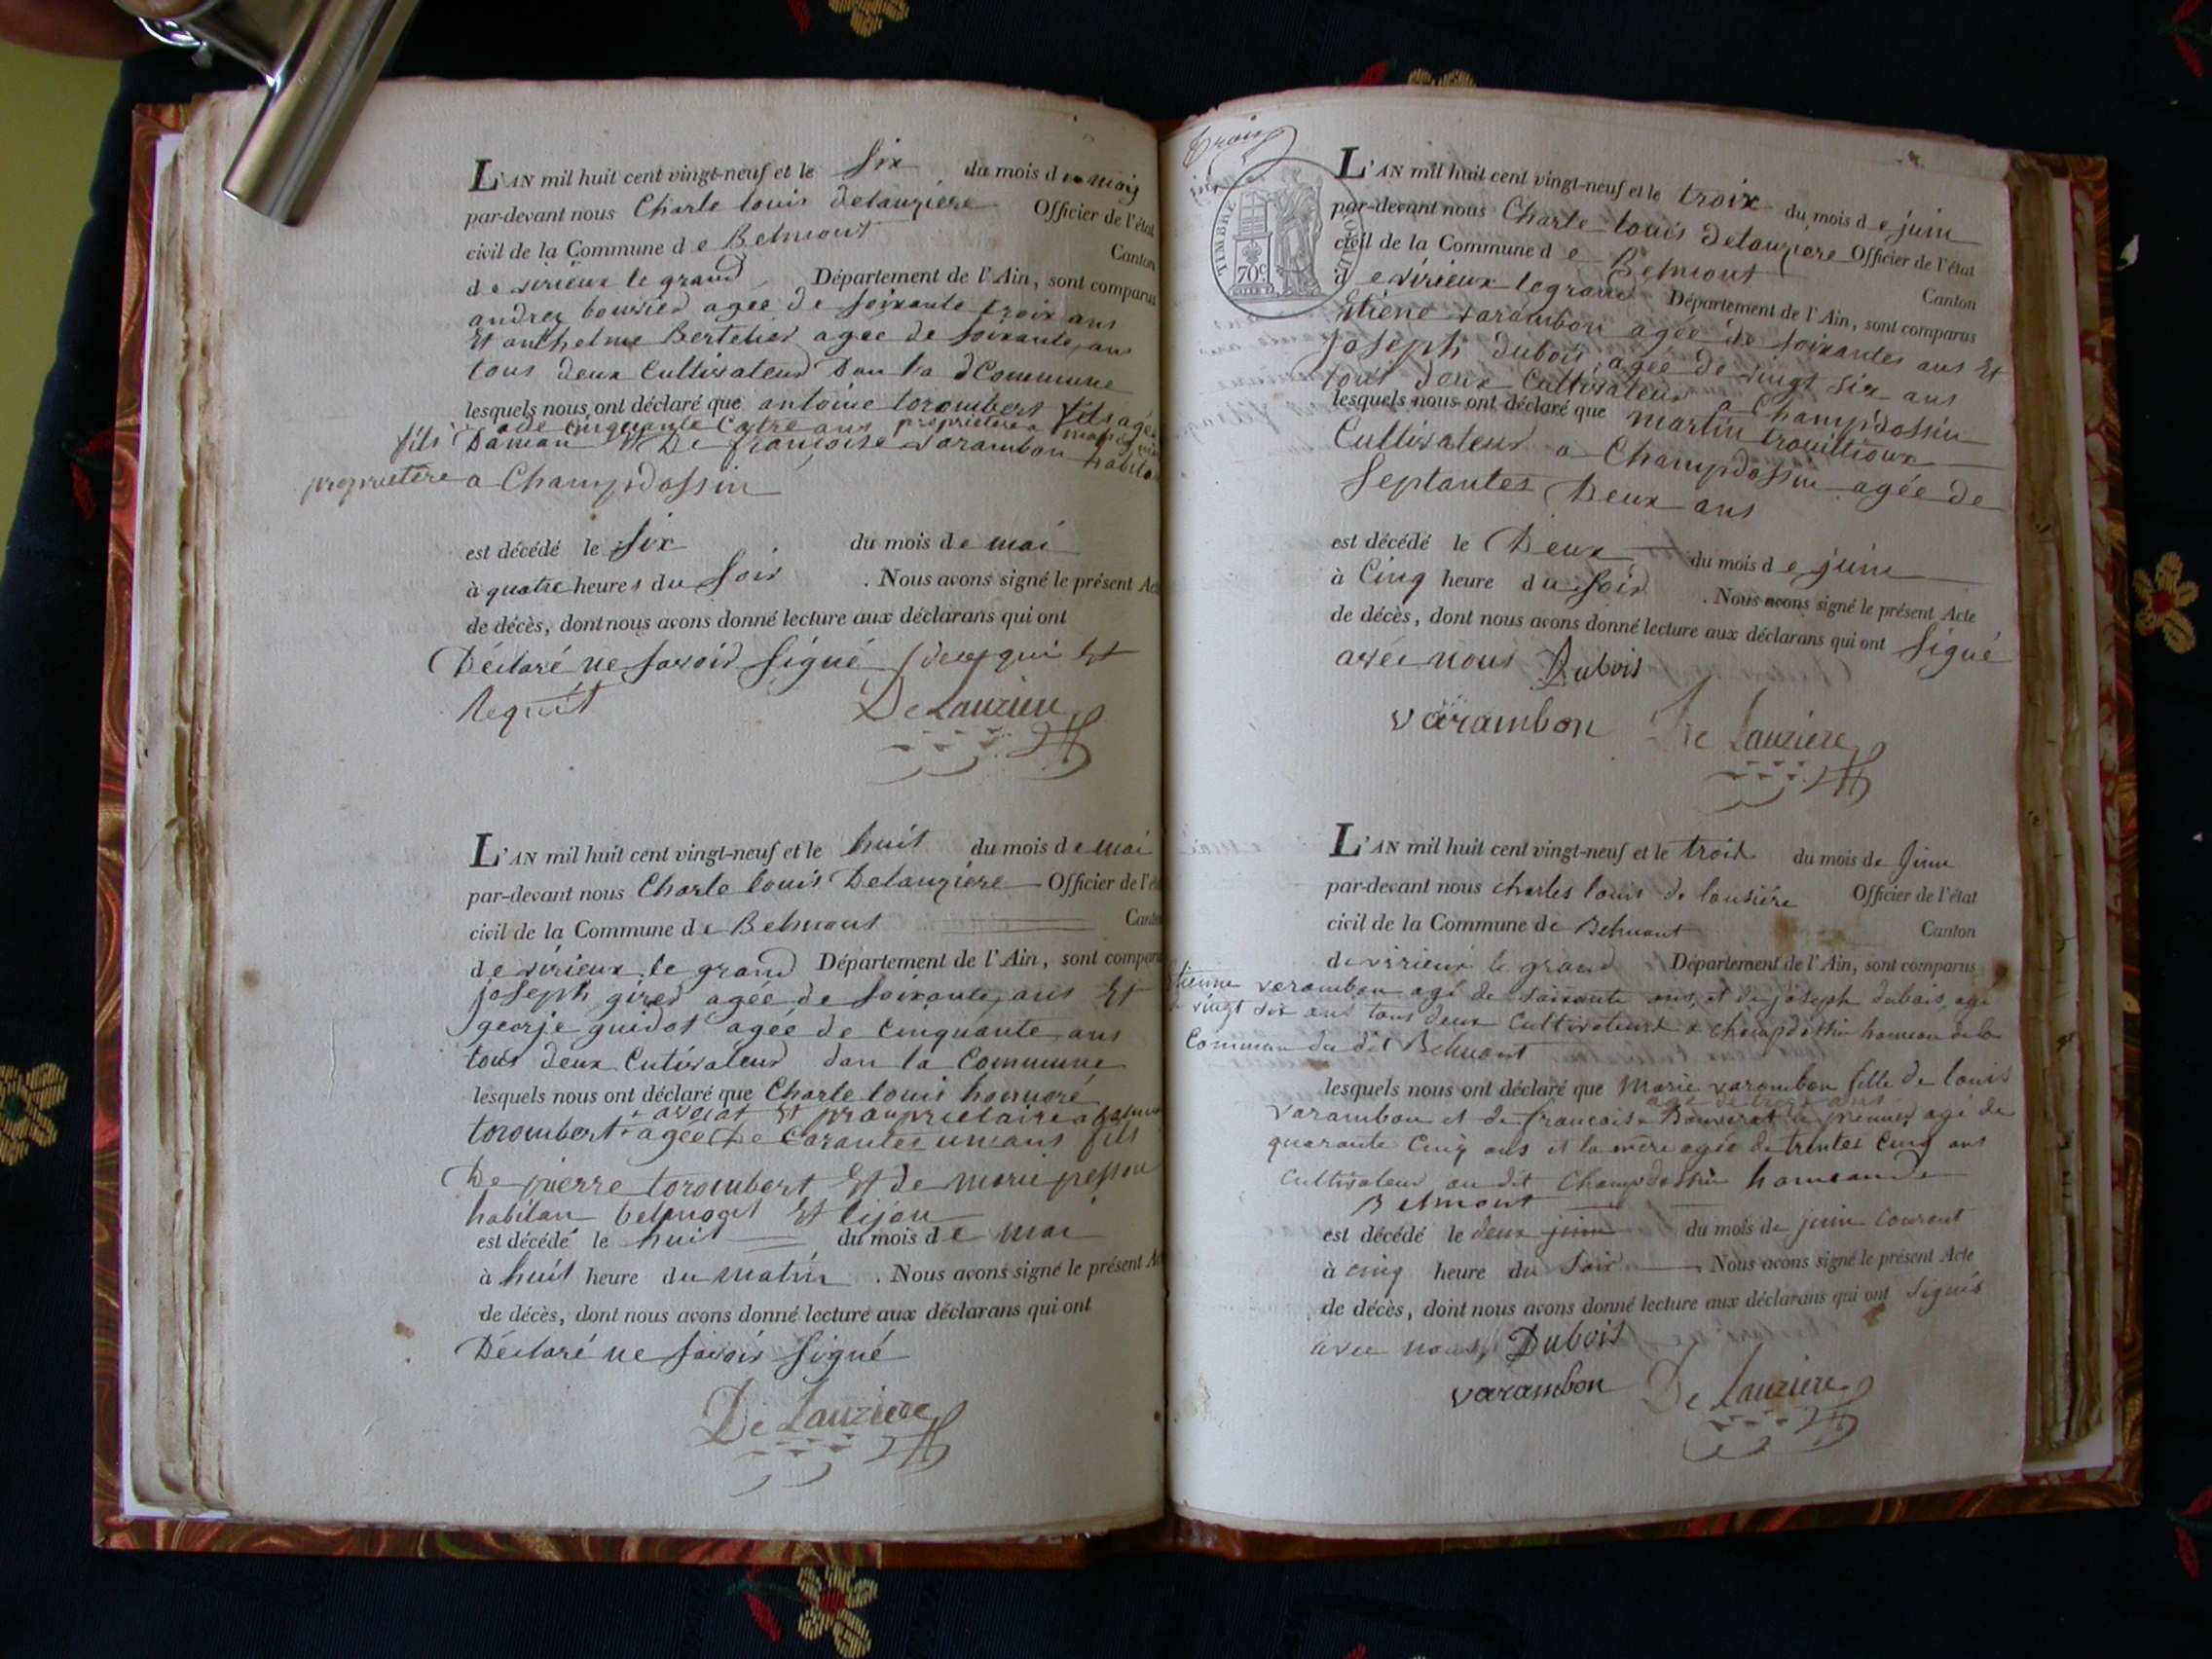 L'AN mil huit cent vingt-neuf et le six du mois de may
par-devant nous Charle louis delauzière Officier de l'état
civil de la Commune de Belmont Canton
de virieux le grand Département de l'Ain, sont comparus
andrez bouvier agée de soixante troix ans
Et anthelme Bertelier agee de soixante ans
tous deux Cultivateur Dan la Commune
lesquels nous ont déclaré que antoine torombert fils agé
ade cinquante Catre ans propriétère a
fils Damian Et De françoise varambon habita
propriétère a Champdossin
est décédé le six du mois de mai
à quatre heures du soir . Nous avons signé le présent Acte
de décès, dont nous avons donné lecture aux déclarans qui ont
Déclaré ne savoir signé de ce qui Et
Requit DeLauziere
L'AN mil huit cent vingt-neuf et le huit du mois de mai
par-devant nous Charle louis Delauzière Officier de l'état
civil de la Commune de Belmont Canton
de virieux le grand Département de l'Ain, sont comparus
joseph girer agée de soixante ans Et
georje guidot agée de Cinquante ans
tous deux Cutivateur dan la Commune
lesquels nous ont déclaré que Charle louis honnoré
avocat Et proupriétaire a
torombert agée De Carantes un ans fils
De pierre torombert Et de marie
habitan belmont Et lijon
est décédé le huit du mois de mai
à huit heure du matin . Nous avons signé le présent Acte
de décès, dont nous avons donné lecture aux déclarans qui ont
Déclaré ne savoir signé
DeLauziere
trois
juin
TIMBRE ROYAL
70c
L'AN mil huit cent vingt-neuf et le troix du mois de juin
par-devant nous Charle louis delauziere Officier de l'état
civil de la Commune de Belmont Canton
de virieux le grand Département de l'Ain, sont comparus
Etiene varambon agée de soixantes ans Et
joseph dubois agée de vingt six ans
tous deux Cultivateur a Champdossin
lesquels nous ont déclaré que martin trouillioux
Cultivateur a Champdossin agée de
septantes Deux ans
est décédé le Deux du mois de juin
à Cinq heure du soir . Nous avons signé le présent Acte
de décès, dont nous avons donné lecture aux déclarans qui ont signé
avec nous Dubois
varambon De Lauziere
L'AN mil huit cent vingt-neuf et le trois du mois de Juin
par-devant nous charles louis de lausiére Officier de l'état
civil de la Commune de Belmont Canton
de virieux le grand Département de l'Ain, sont comparus
tienne varambon agé de soixante ans, et de joseph dubois, agé
vingt six ans tous deux Cultivateurs a champdossin hameau de la
Commune du dit Belmont
lesquels nous ont déclaré que Marie varambon fille de louis
agé de trois ans
varambon et de francoise Bouverat le premier agé de
quarante Cinq ans et la mère agée de trentes Cinq ans
Cultivateur au dit Champdossin hameau de
Belmont
est décédé le deux juin du mois de juin courant
à cinq heure du soir Nous avons signé le présent Acte
de décès, dont nous avons donné lecture aux déclarans qui ont signés
avec nous, Dubois
varambon De Lauziere